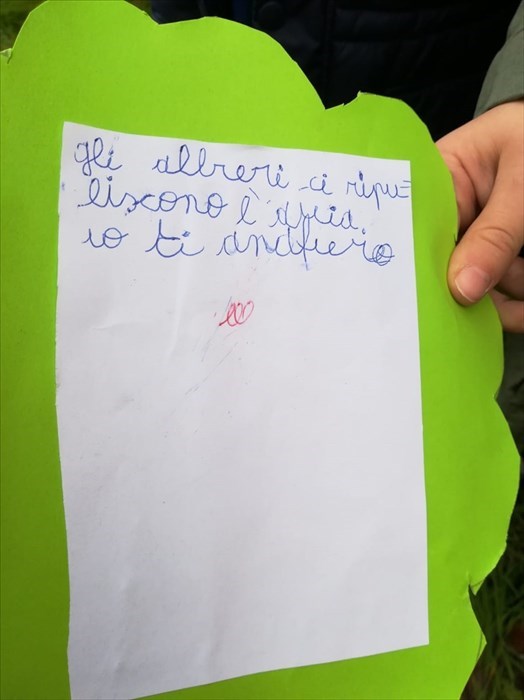 gli alberi ci ripu=
liscono l'aria.
io ti anafiero